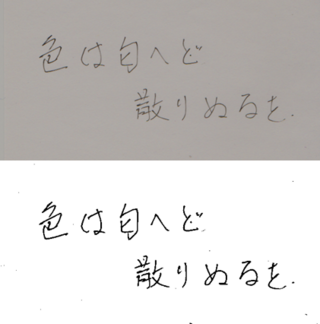 色は匂へど
散りぬるを.
色は匂へど
散りぬるを.